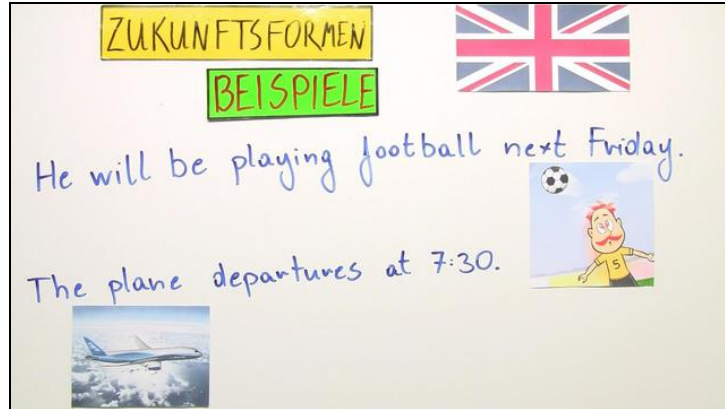 ZUKUNFTSFORMEN
BEISPIELE
He will be playing football next Friday.
The plane departures at 7:30.
5